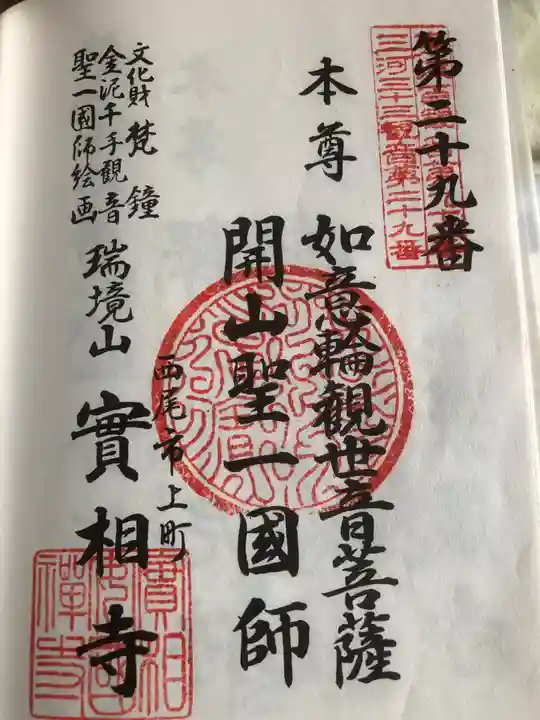 第二十九番
三河三十三観音第二十九番
本尊 如意輪觀世音菩薩
開山聖一國師
西尾市上町
文化財 梵鐘
金泥千手観音
聖一國師絵画
瑞境山 實相寺